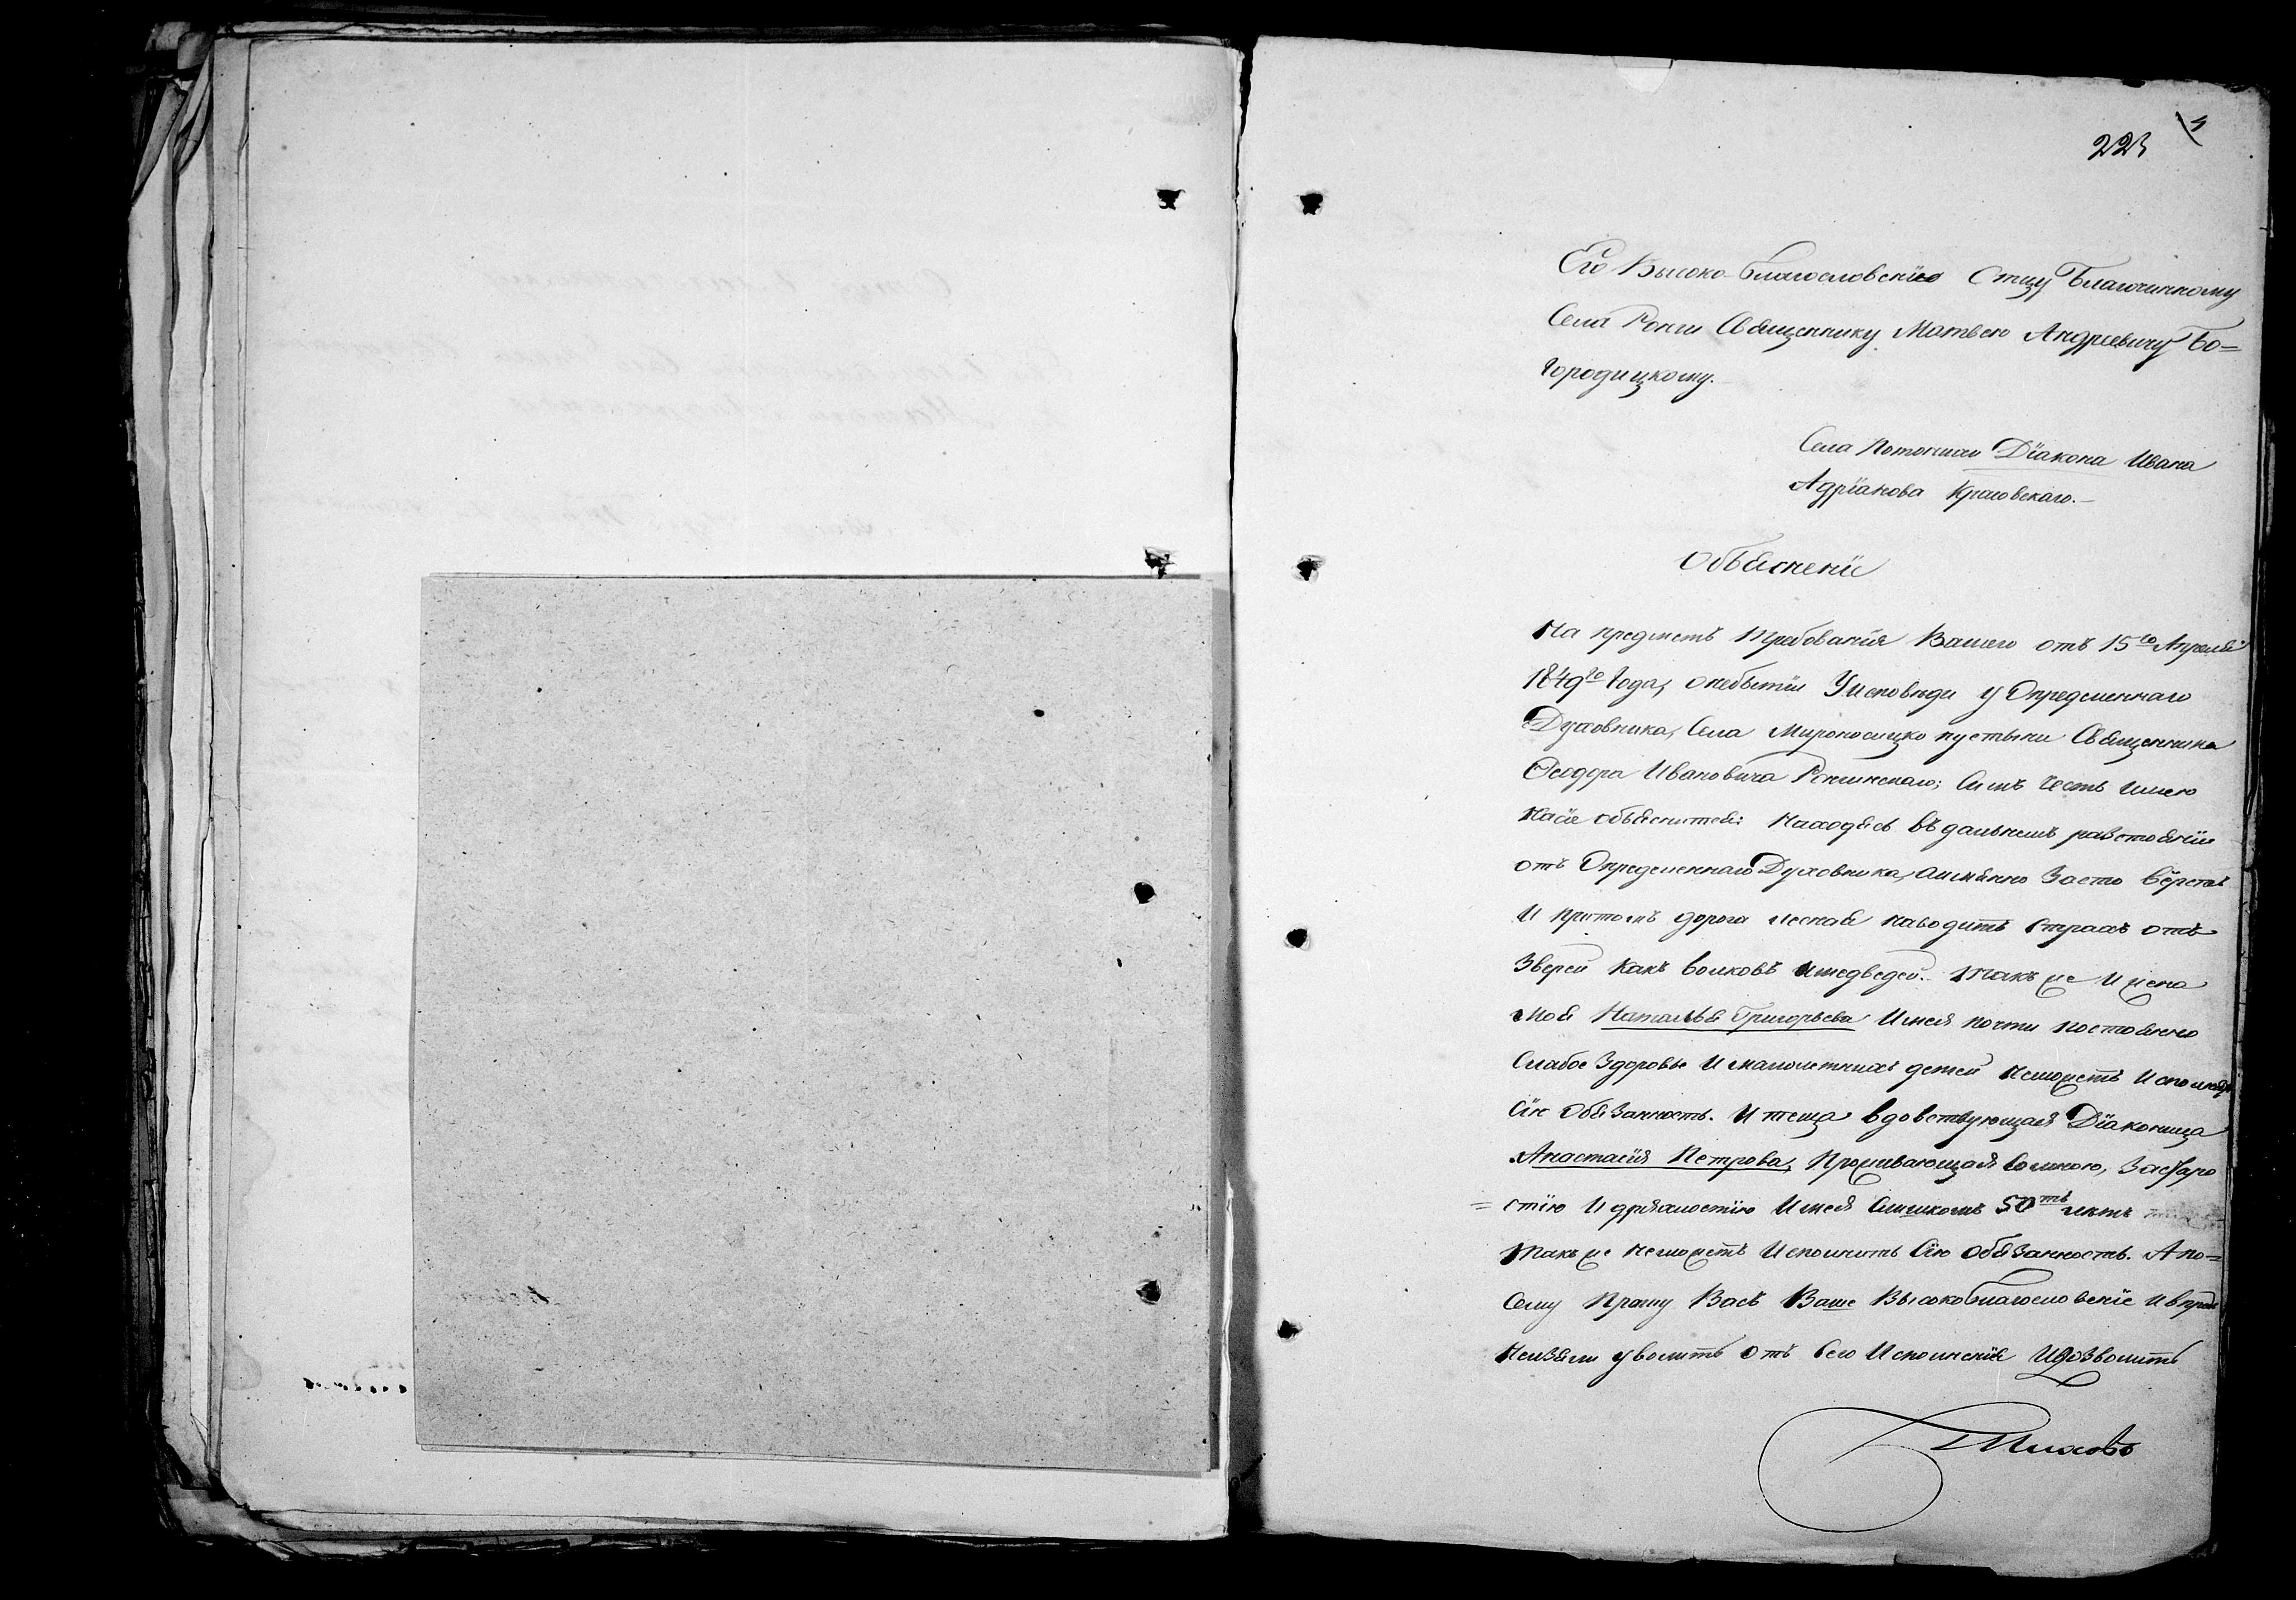 223
Его Высоко-благословенію Отцу Благочинному
Села Ронги Священнику Матвею Андреевичу Бо=
городицкому.
Села Діакона Ивана
Адріанова
Объясненіе
На предметъ требованія Вашего отъ 15го Апреля
1849го Года, о небытіи У исповѣди у Определеннаго
Духовника, Села Мироносицко пустыни Священника
Феодора Ивановича Ронгинскаго; Симъ Честь имею
объяснится: Находясь въ дальнемъ разстояніи
отъ Определеннаго Духовника, а имянно За сто Вёрстъ
И притомъ дорога лесная наводитъ Страхъ отъ
Зверей Какъ волковъ и медведей. Также И жена
моя Наталья Григорьева Имея почти постоянно
Слабое Здоровье И малолетнихъ детей неможетъ
Сію Обязанность. И теща вдовствующая Діаконица
Анастасія Петрова, Проживающая со мною, За старо
= стію И дряхлостію Имея Слишкомъ 50тъ летъ
также неможетъ Исполнить Сію обязанность. А по=
сему Прошу Васъ Ваше Высокоблагословеніе
уволить отъ Сего Исполненія И дозволить